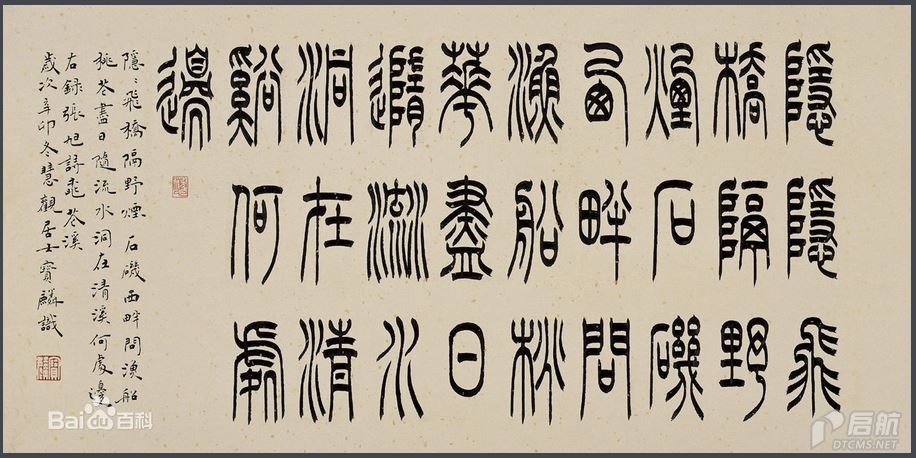 隱隱飛
橋隔野
煙石磯
西畔問
漁船桃
華盡日
隨流水
洞在清
谿何處
邊
隱〻飛橋隔野煙石磯西畔問漁船
桃花盡日隨流水洞在清溪何處邊
右録張旭詩桃花溪
歲次辛卯冬慧觀居士寶麟識
Bai百科
启航
DTCMS.NET